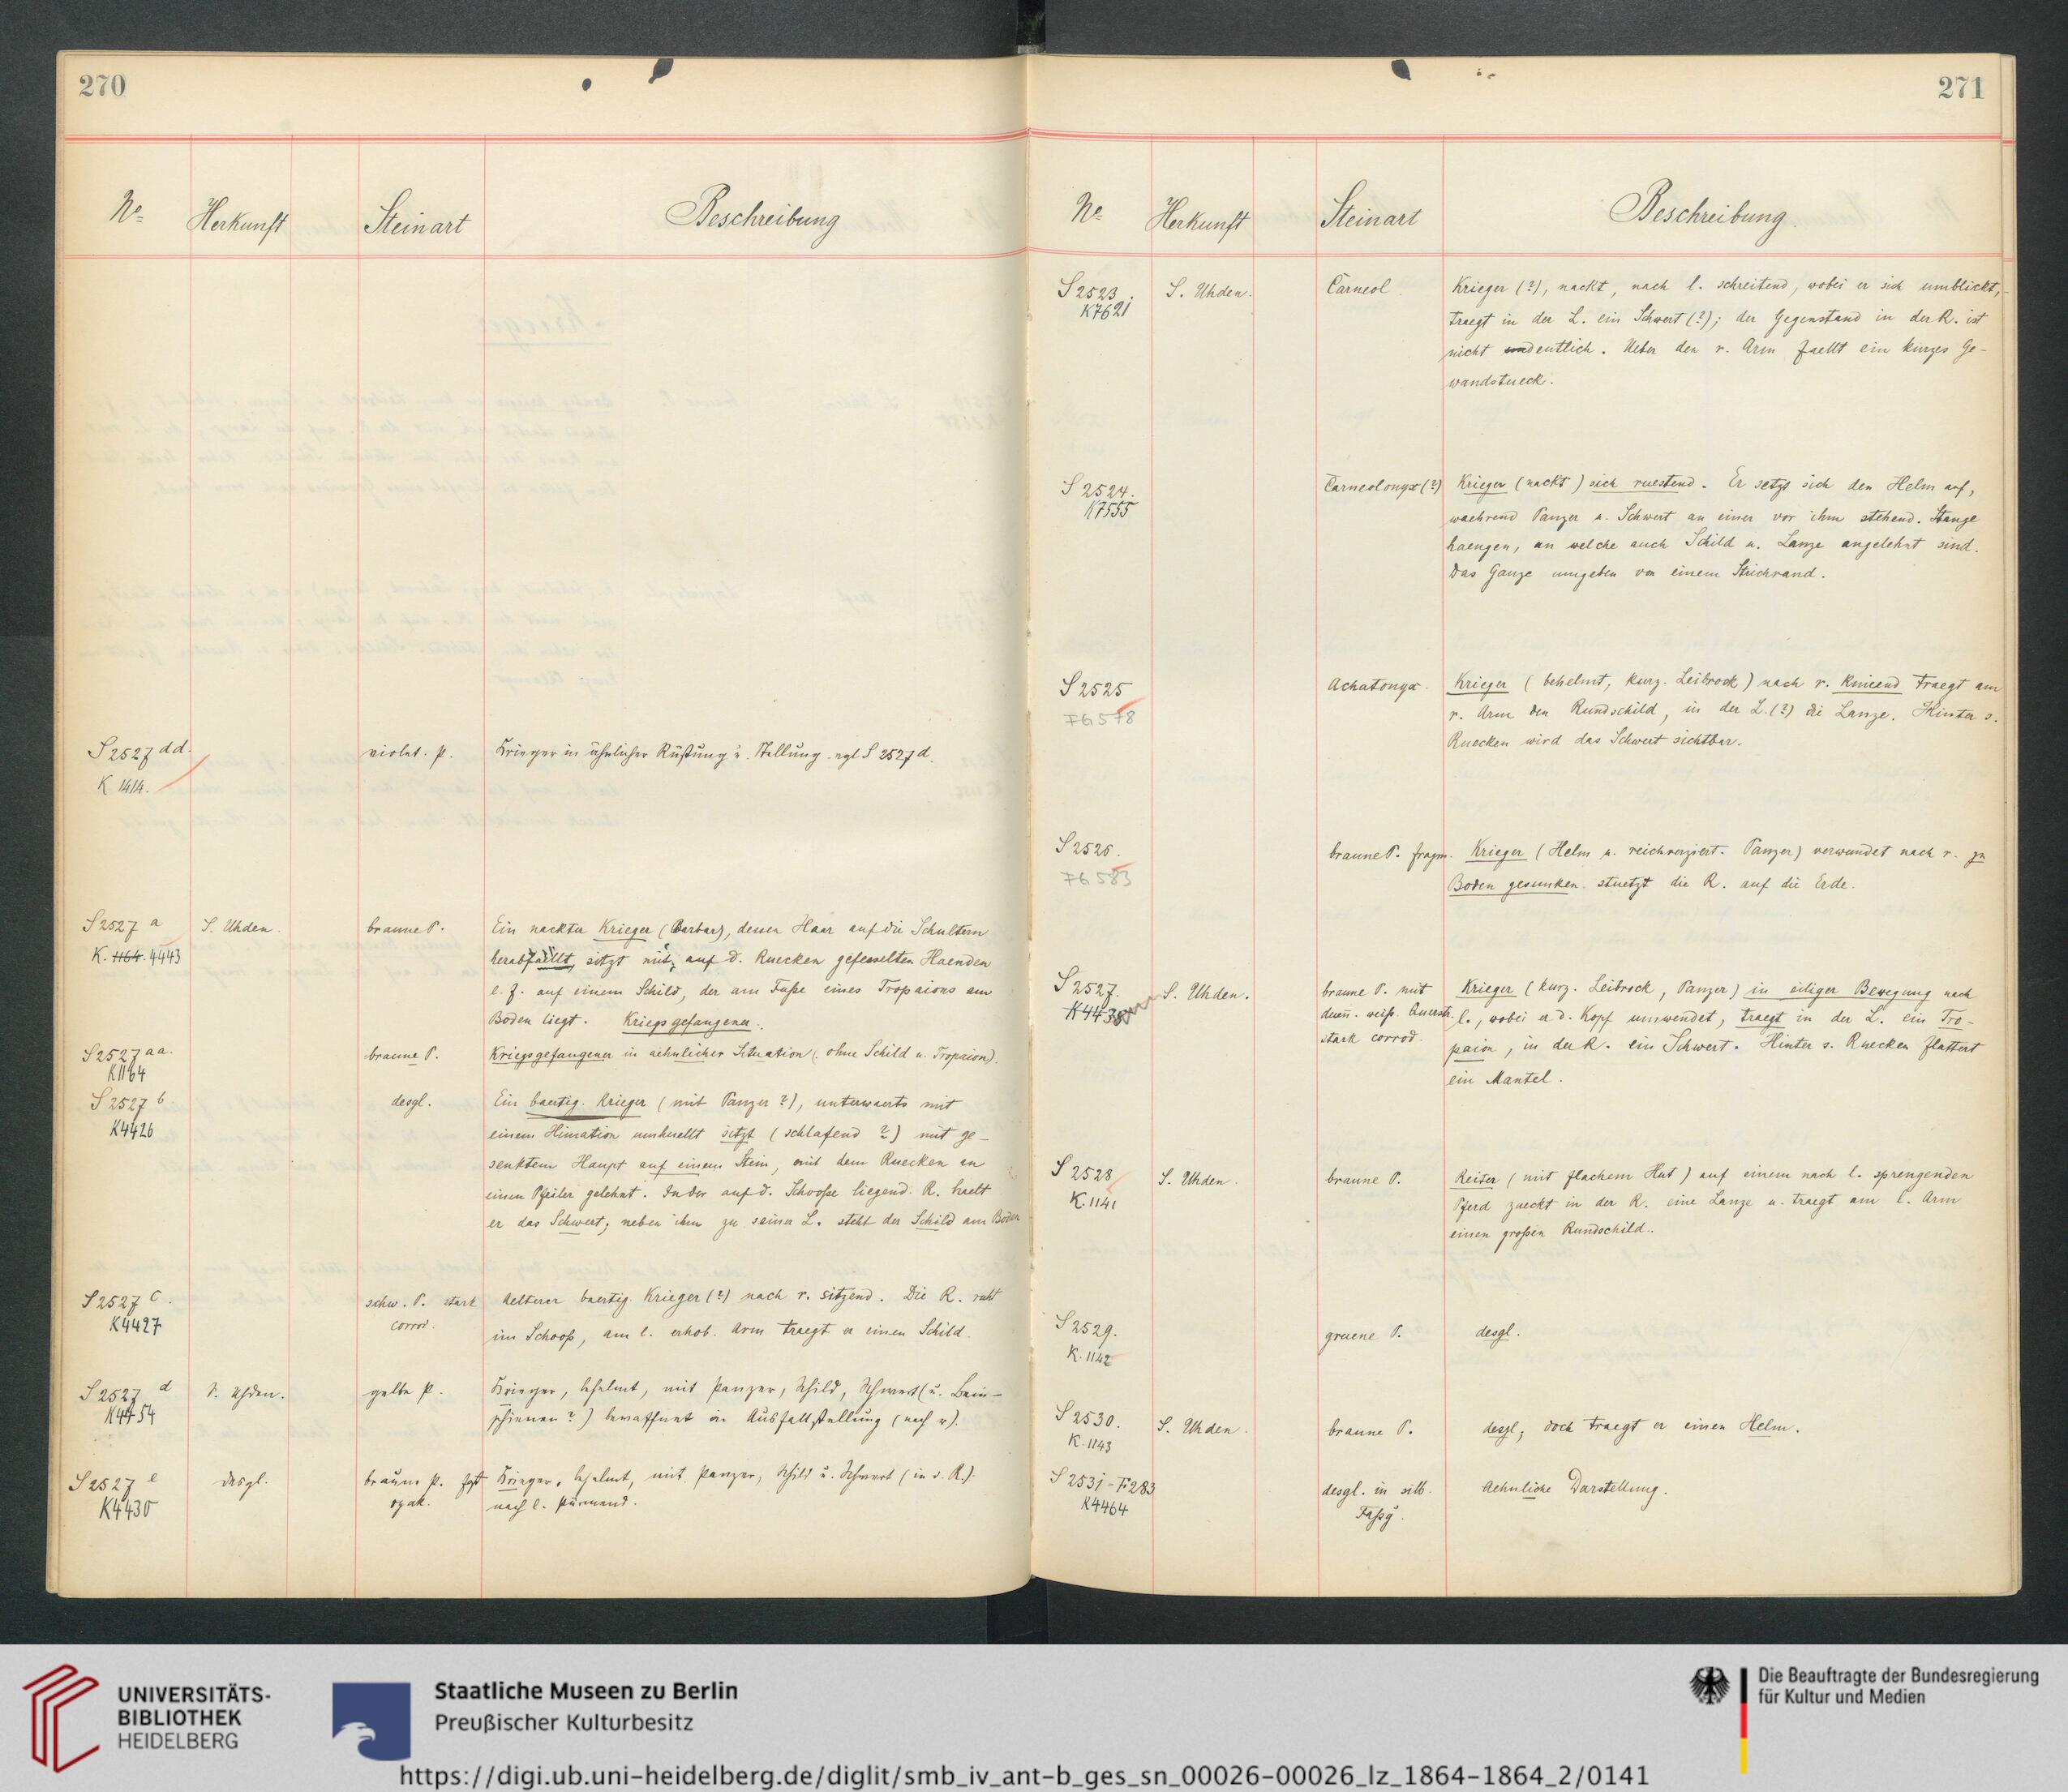 270
No Herkunft Steinart Beschreibung
S 2527 dd. violet. P. Krieger in ähnlicher Rüstung u. Stellung vgl S 2527 d.
K 1414.
S 2527 a S. Uhden. braune P. Ein nackter Krieger (Barbar), dessen Haar auf die Schultern
K. 1164. 4443 herabfällt, sitzt mit auf d. Ruecken gefesselten Haenden
e. f. auf einem Schild, der am Fuße eines Tropaions am
Boden liegt. Kriegsgefangener.
S 2527 aa. braune P. Kriegsgefangener in aehnlicher Situation (ohne Schild u. Tropaion).
K 1164
S 2527 b desgl. Ein baertig. Krieger (mit Panzer?), unterwaerts mit
K 4426 einem Himation umhuellt sitzt (schlafend?) mit ge-
senktem Haupt auf einem Stein, mit dem Ruecken an
einen Pfeiler gelehnt. In der auf d. Schooße liegend. R. haelt
er das Schwert; neben ihm zu seiner L. steht der Schild am Boden
S 2527 c. schw. P. stark Aelterer baertig. Krieger (?) nach r. sitzend. Die R. ruht
K 4427 corrod. im Schooß, am l. erhob. Arm traegt er einen Schild.
S 2527 d S. Uhden. gelbe P. Krieger, behelmt, mit Panzer, Schild, Schwert (u. Bein-
K 4454 schienen?) bewaffnet in Ausfallstellung (nach r).
S 2527 e desgl. braune P. fgt Krieger, behelmt, mit Panzer, Schild u. Schwert (in d. R.).
K 4430 opak. nach l. stürmend.
271
No Herkunft Steinart Beschreibung.
S 2523. S. Uhden. Carneol. Krieger (?), nackt, nach l. schreitend, wobei er sich umblickt,
K 7621 traegt in der L. ein Schwert (?); der Gegenstand in der R. ist
nicht deutlich. Ueber den r. Arm faellt ein kurzes Ge-
wandstueck.
S 2524. Carneolonyx (?) Krieger (nackt) sich ruestend. Er setzt sich den Helm auf,
K 7555 waehrend Panzer u. Schwert an einer vor ihm stehend. Stange
haengen, an welche auch Schild u. Lanze angelehnt sind.
Das Ganze umgeben von einem Strichrand.
S 2525 Achatonyx. Krieger (behelmt, kurz. Leibrock) nach r. knieend traegt am
FG 578 r. Arm den Rundschild, in der L. (?) die Lanze. Hinter s.
Ruecken wird das Schwert sichtbar.
S 2526. braune P. fragm. Krieger (Helm u. reichverziert. Panzer) verwundet nach r. zu
FG 583 Boden gesunken. stuetzt die R. auf die Erde.
S 2527. S. Uhden. braune P. mit Krieger (kurz. Leibrock, Panzer) in eiliger Bewegung nach
K 4438 weiß. Querstr. l., wobei er d. Kopf umwendet, traegt in der L. ein Tro-
stark corrod. paion, in der R. ein Schwert. Hinter s. Ruecken flattert
ein Mantel.
S 2528 S. Uhden. braune P. Reiter (mit flachem Hut) auf einem nach l. sprengenden
K. 1141 Pferd zueckt in der R. eine Lanze u. traegt am l. Arm
einen großen Rundschild.
S 2529. gruene P. desgl.
K. 1142
S 2530. S. Uhden. braune P. desgl; doch traegt er einen Helm.
K. 1143
S 2531 - F 283 desgl. in silb. Aehnliche Darstellung.
K 4464 Faßg.
UNIVERSITÄTS-
BIBLIOTHEK
HEIDELBERG
Staatliche Museen zu Berlin
Preußischer Kulturbesitz
Die Beauftragte der Bundesregierung
für Kultur und Medien
https://digi.ub.uni-heidelberg.de/diglit/smb_iv_ant-b_ges_sn_00026-00026_lz_1864-1864_2/0141